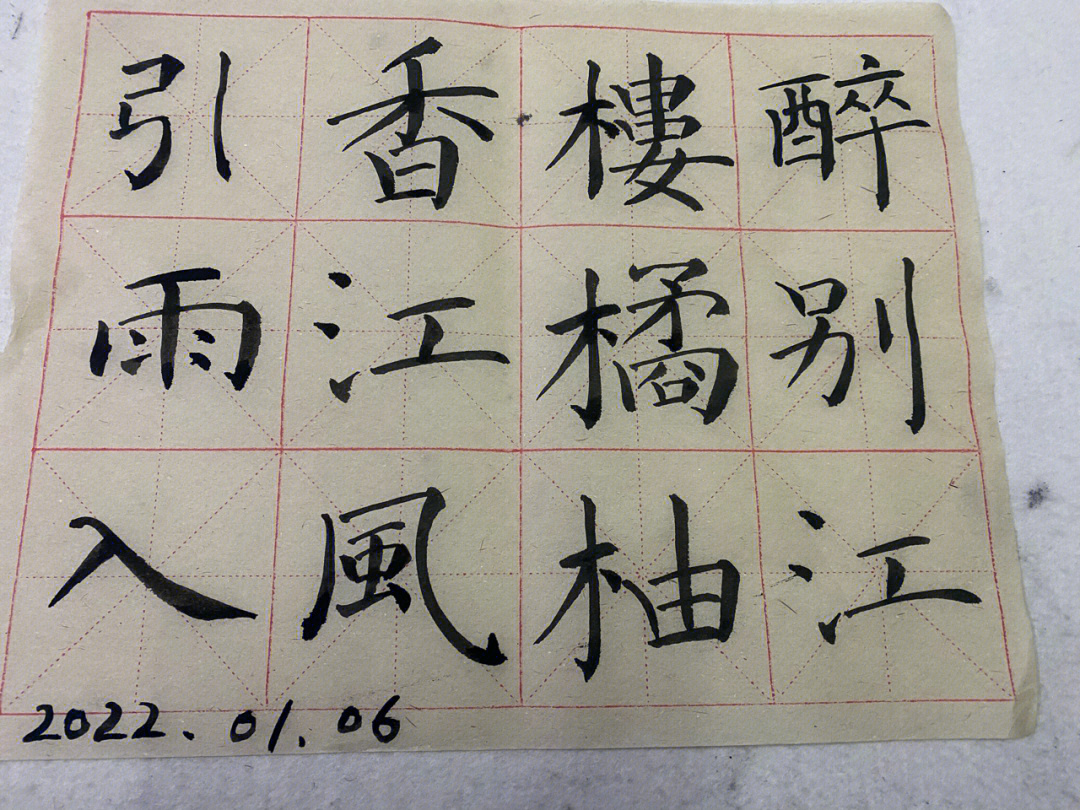 醉别江
樓橘柚
香江風
引雨入
2022.01.06